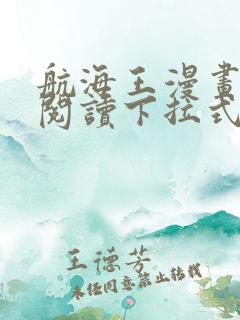 航海王漫畫
閱讀下拉式
王德芳
未經同意禁止轉載